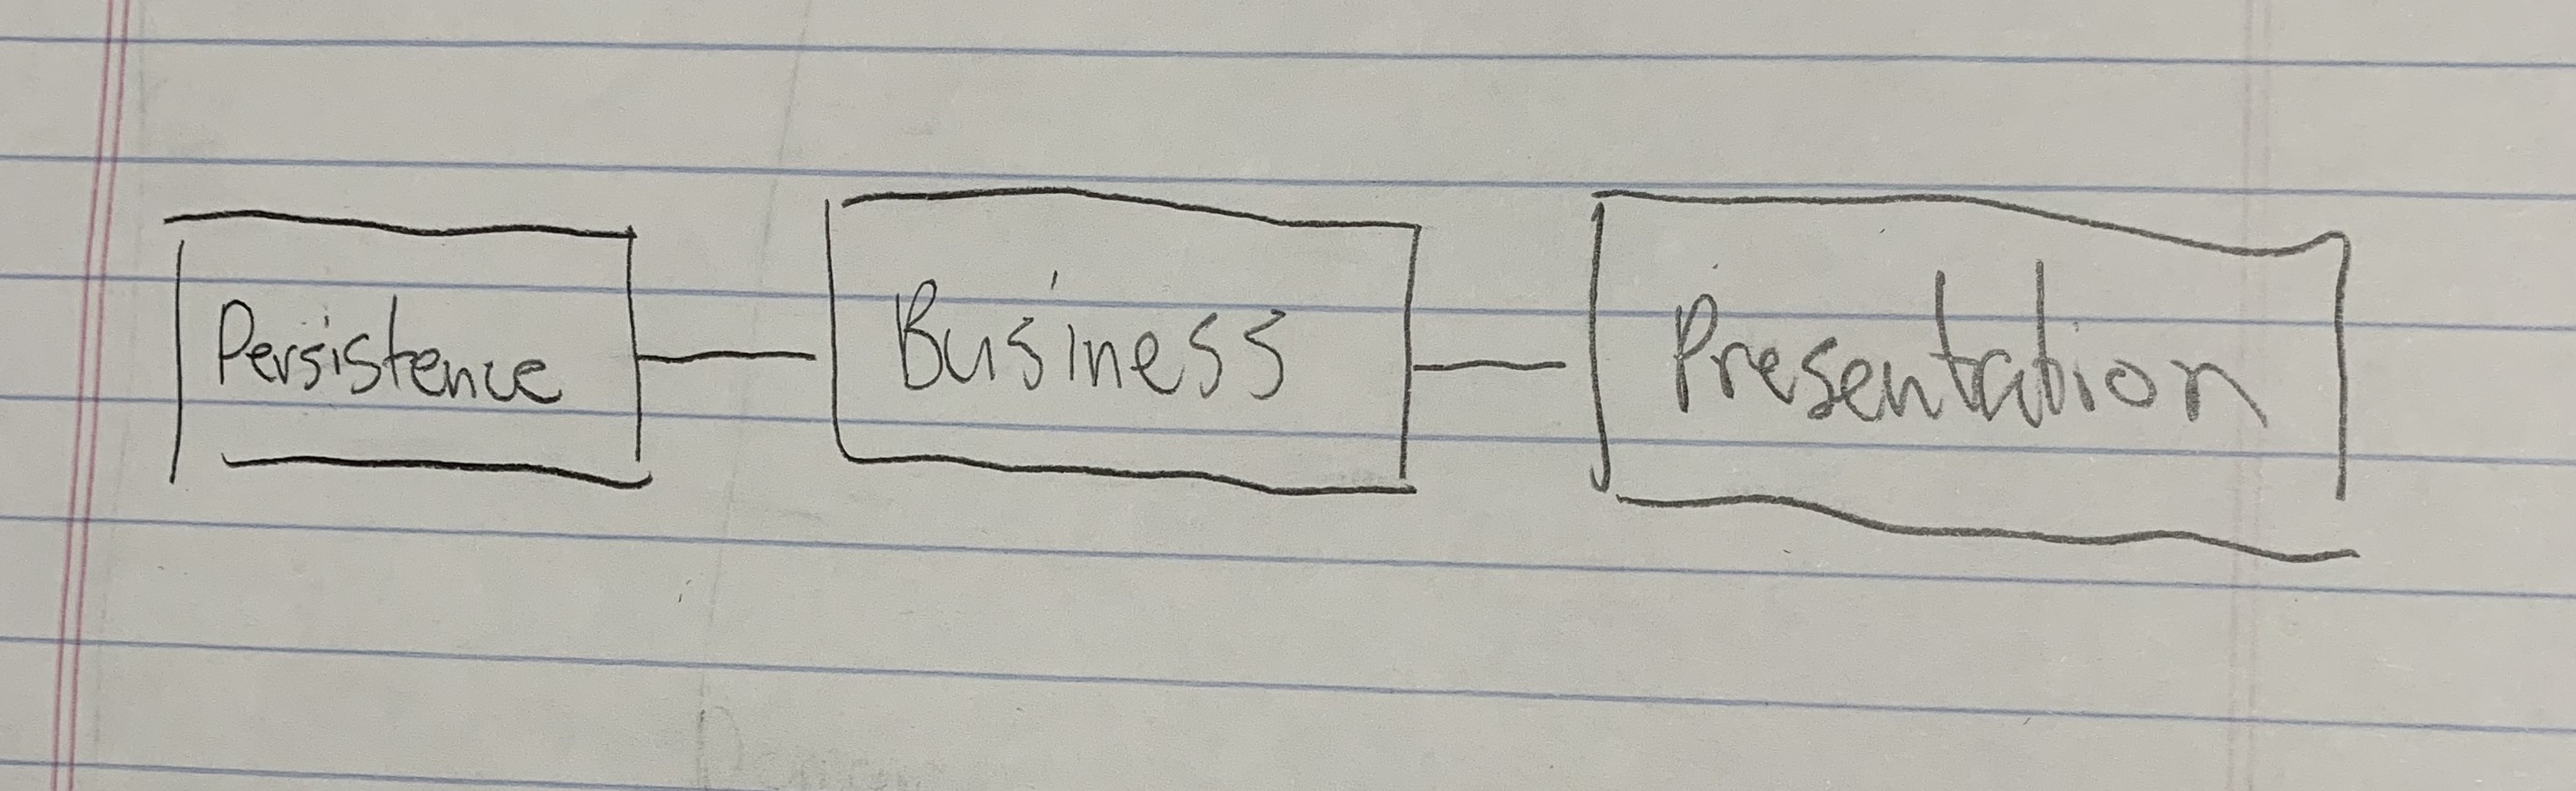 Persistence Business Presentation